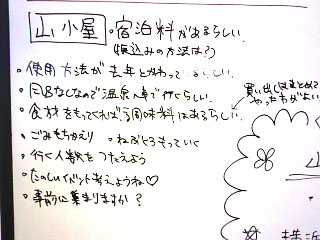 山小屋
・宿泊料があるらしい
振込みの方法は？
・使用方法が去年とかわっているらしい
・風呂なしなので温泉へ車で行くらしい
・食材をもってくれば調味料はあるらしい
買い出しはまとめて
やった方がよい
・ごみもちかえり ・ねぶくろもっていく
・行く人数をつたえよう
・たのしいイベント考えようね♡
・事前に集まりますか？
山
横浜